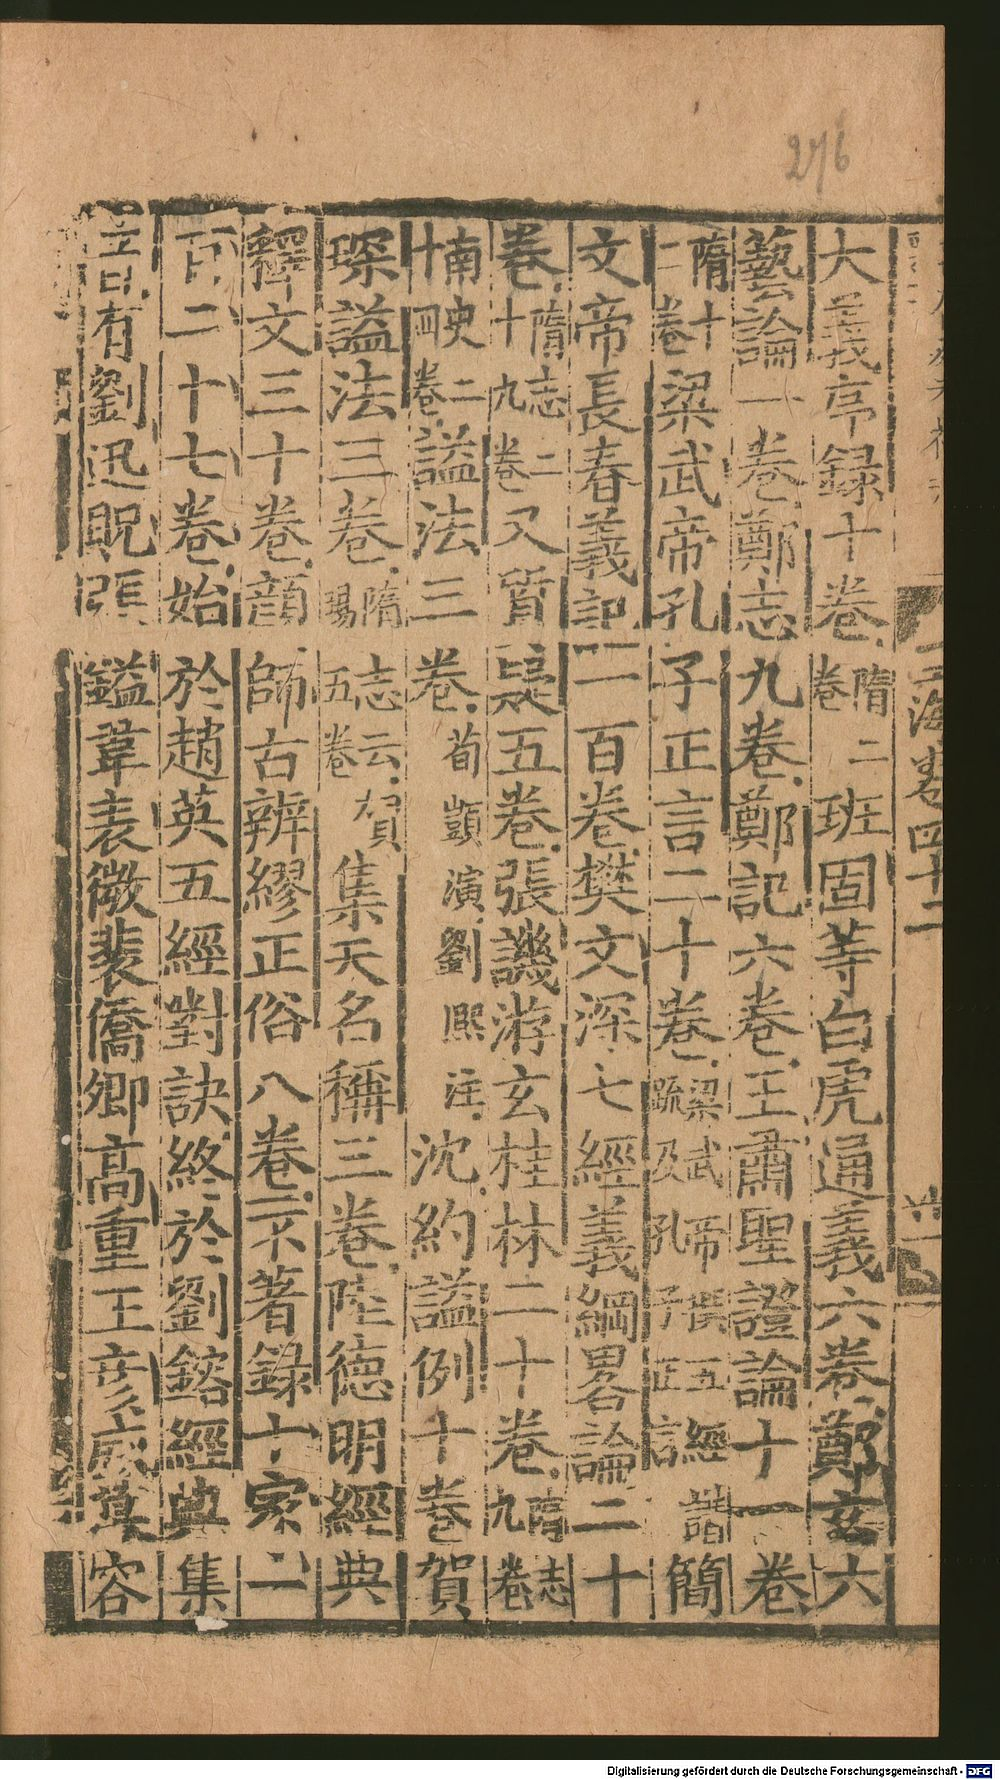 276
大義卷錄十卷隋二卷班固等白虎通義六卷鄭玄六
藝論一卷鄭志九卷鄭記六卷王肅聖證論十一卷
隋十二卷梁武帝孔子正言二十卷梁武帝撰五經講疏及孔子正言簡
文帝長春義記一百卷樊文深七經義綱畧論二十
卷隋志二十九卷又質疑五卷張譏游玄桂林二十卷隋志九卷
南史二十四卷謚法三卷荀顗演劉熙注沈約謚例十卷賀
琛謚法三卷隋志云五卷賀集天名稱三卷陸德明經典
釋文三十卷顏師古辨繆正俗八卷不著錄十家一
百二十七卷始於趙英五經對訣終於劉鎔經典集
有劉迅貺張鎰韋表微裴僑卿高重王彥威慕容
海卷四十二
廿一
Digitalisierung gefördert durch die Deutsche Forschungsgemeinschaft - DFG